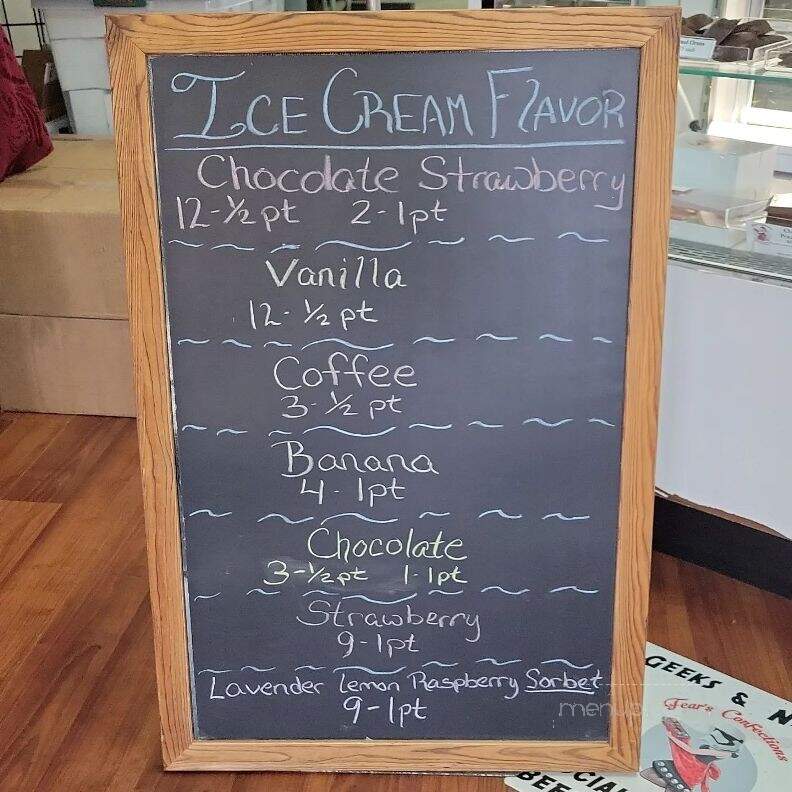 ICE CREAM FLAVOR
Chocolate Strawberry
12-½pt 2-1pt
Vanilla
12-½pt
Coffee
3-½pt
Banana
4-1pt
Chocolate
3-½pt 1-1pt
Strawberry
9-1pt
Lavender lemon Raspberry Sorbet
9-1pt
GEEKS & N
Fear's Confections
CIA
BEE